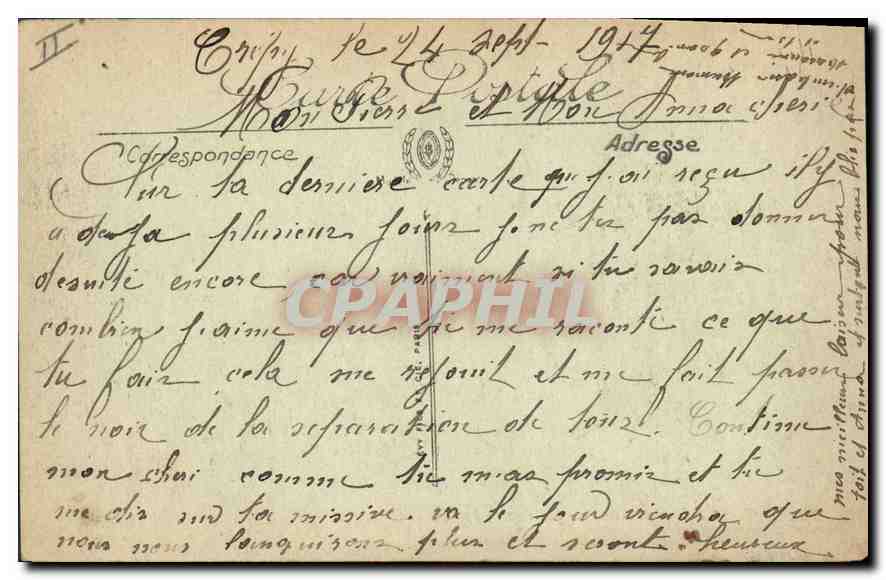 II
Crépy le 24 sept 1917
Carte Postale
Mon Pierre et Mon Anna cheri
Correspondance
Adresse
Sur ta derniere carte que j.ai reçu il y
a deja plusieur jours je ne tes pas donner
desuite encore car vraiment si tu savais
combien j.aime que tu me raconte ce que
tu fais cela me rejouit et me fait passer
le noir de la separation de tous. Continue
mon cheri comme tu mas promis et tu
me dis sur ta missive. va le jour viendra que
nous nous languirons plus et seront heureux
mes meilleur baiser pour
toit et Anna et
CPAPHIL
LEVY FILS ET CIE. PARIS